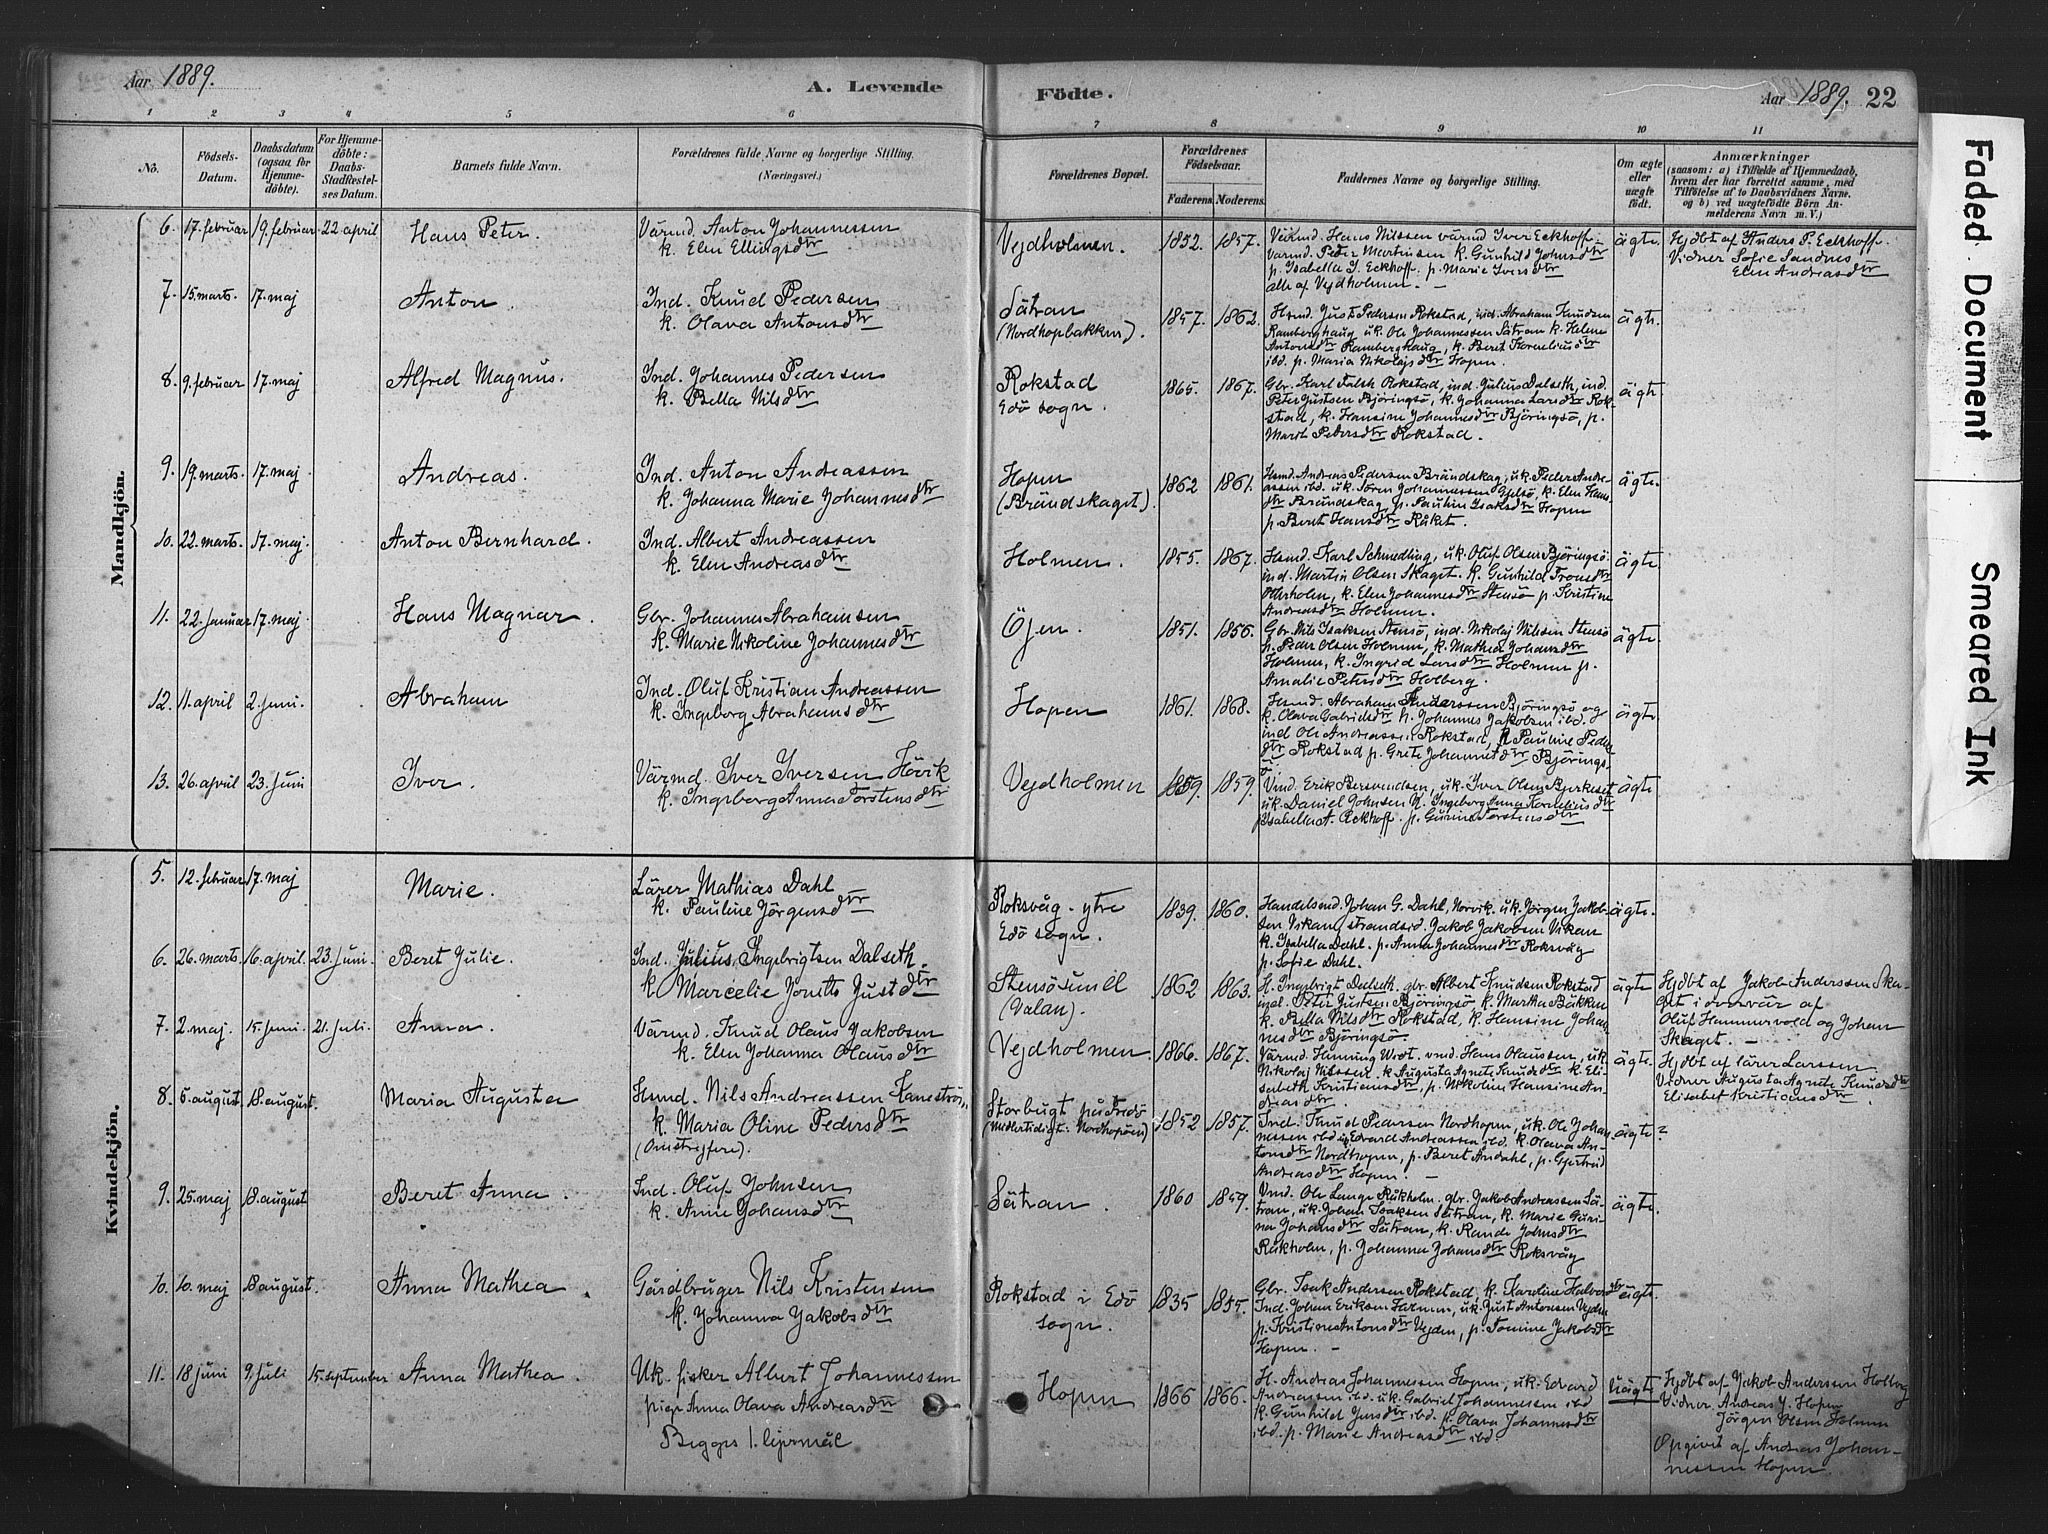 Aar 1889.
A. Levende
Födte.
Aar 1889. 22
1 2 3 4 5 6 7 8 9 10 11
No.
Födsels-Datum.
Daabsdatum (ogsaa for Hjemmedöbte).
For Hjemmedöbte: Daabs-Stadfæstelses Datum.
Barnets fulde Navn.
Forældrenes fulde Navne og borgerlige Stilling.
(Næringsvei.)
Forældrenes Bopæl.
Forældrenes Födselsaar.
Faderens. Moderens.
Faddernes Navne og borgerlige Stilling.
Om ægte eller uægte födt.
Anmærkninger
(saasom: a) i Tilfælde af Hjemmedaab, hvem der har forrettet samme, med Tilföielse af to Daabsvidners Navne, og b) ved uægtefödte Börn Anmelderens Navn m. V.)
Mandkjön.
6. 17. februar 19. februar 22. april Hans Peter.
Värmd. Anton Johannessen
k. Elen Ellingsdtr
Vejdholmen. 1852. 1857.
Värmd. Hans Nilssen värmd Iver Eckhoff
Värmd. Peder Martinsen k. Gunhild Johnsdtr
p. Isabella J. Eckhoff. p. Marie Iversdtr
alle af Vejdholmen.
ägte.
Hjdbt af Anders P. Eckhoff
Vidner Sofie Sandnes
Elen Andreasdtr
7. 15. marts. 17. maj Anton.
Ind. Knud Pedersen
k. Olava Antonsdtr
Sätran
(Nordhopbakken). 1857. 1862.
Hsmd. Just Pedersen Rokstad, ind. Abraham Knudsen
Ramberghaug, uk. Ole Johannessen Sätran k. Helene
Antonsdtr Ramberghaug, k. Beret Korneliusdtr
ibd. p. Maria Nikolajsdtr Hopen.
ägte.
8. 9. februar 17. maj Alfred Magnus.
Ind. Johannes Pedersen
k. Bella Nilsdtr
Rokstad
Edö sogn. 1865. 1867.
Gbr. Karl Falth Rokstad, ind. Julius Dalseth, ind.
Peter Justsen Björingsö, k. Johanna Larsdtr Rok-
stad, k. Hansine Johannesdtr Björingsö, p.
Marit Petersdtr Rokstad.
ägte.
9. 19. marts. 17. maj Andreas.
Ind. Anton Andreassen
k. Johanna Marie Johannesdtr
Hopen
(Brändskaget). 1862 1861.
Hsmd. Andreas Pedersen Brändskag, uk. Peder Andre-
assen ibd. uk. Sören Johannessen Gjelsö, k. Elen Hans-
dtr Brändskag, p. Pauline Isaksdtr Hopen
p. Beret Hansdtr Råket.
ägte.
10. 22. marts. 17. maj. Anton Bernhard.
Ind. Albert Andreassen
k. Elen Andreasdtr
Holmen. 1855. 1867.
Hsmd. Karl Schmedling, uk. Oluf Olsen Björingsö
ind. Martin Olsen Skaget. k. Gunhild Tronsdtr
Otterholm, k. Elen Johannesdtr Stensö p. Kristine
Andreasdtr Holmen.
ägte.
11. 22. januar 17. maj. Hans Magnar.
Gbr. Johannes Abrahamsen
k. Marie Nikoline Johannesdtr
Öjen. 1851. 1856.
Gbr. Nils Isaksen Stensö, ind. Nikolaj Nilssen Stensö
p. Peder Olsen Holmen, k. Mathea Johansdtr
Holmen, k. Ingrid Larsdtr Holmen p.
Amalie Petersdtr Holberg.
ägte.
12. 11. april 2. juni. Abraham
Ind. Oluf Kristian Andreassen
k. Ingeborg Abrahamsdtr
Hopen 1861. 1868.
Hsmd. Abraham Anderssen Björingsö og
k. Olava Gabrielsdtr p. Johannes Jakobsen ibd.
ind Ole Andreassen Rokstad, p Pauline Peder
dtr Rokstad p. Grete Johannesdtr Björings-
ö
ägte.
13. 26. april 23. juni Iver.
Värmd. Iver Iversen Hövik
k. Ingeborg Anna Torstensdtr
Vejdholmen 1859. 1859.
Vmd. Erik Bersvendsen, uk. Iver Olsen Bjerkeset
uk. Daniel Johnsen N. Ingeborg Anna Korneliusdtr
Isabella A. Eckhoff. p. Gurine Torstensdtr
ägte
Kvindekjön.
5. 12. februar 17. maj Marie.
Lärer Mathias Dahl
k. Pauline Jörgensdtr
Roksvåg - ytre
Edö sogn. 1839. 1860.
Handelsmd. Johan G. Dahl, Norvik. uk. Jörgen Jakob-
sen Vikan, strandsid. Jakob Jakobsen Vikan
k. Isabella Dahl. p. Anna Johannesdtr Roksvåg
p. Sofie Dahl.
ägte.
6. 26. marts. 16. april. 23. juni. Beret Julie.
Ind. Julius Ingebrigtsen Dalseth.
k. Marcelie Jonette Justdtr
Stensösund
(Valan). 1862 1863.
H. Ingebrigt Dalseth. gbr. Albert Knudsen Rokstad
ind. Peter Justsen Björingsö k. Martha Bakken
k. Bella Nilsdtr Rokstad, k. Hansine Johan-
nesdtr Björingsö.
ägte
Hjdbt af Jakob Anderssen Ska-
get i overvär af
Oluf Hammervold og Johan
Skaget.
7. 2. maj. 15. juni. 21. juli. Anna.
Värmd. Knud Olaus Jakobsen
k. Elen Johanna Olausdtr
Vejdholmen 1866. 1867.
Värmd. Henning Wist. vmd. Hans Olaussen, uk.
Nikolaj Nilssen. k. Augusta Agnete Knudsdtr k. Eli-
sabeth Kristiansdtr, p. Nikoline Hansine An-
dreasdtr.
ägte.
Hjdbt af lärer Larssen.
Vidner Augusta Agnete Knudsdtr
Elisabet Kristiansdtr.
8. 6. august 18. august. Maria Augusta
Hsmd. Nils Andreassen Kaneströ
k. Maria Oline Pedersdtr
(Omstrejfere).
Storbugt på Fredö
(Midlertidigt: Nordhopöen) 1852 1857.
Ind. Knud Pedersen Nordhopen, uk. Ole Johan-
nessen ibd. Edvard Andreassen ibd. k. Olava An-
tonsdtr Nordhopen, p. Beret Andahl, p. Gjertrud
Andreasdtr Hopen.
ägte?
9. 25. maj 18. august Beret Anna.
Ind. Oluf Johnsen
k. Anne Johansdtr
Sätran. 1860 1859.
Vmd. Ole Lange Råkholm. gbr. Jakob Andreassen Sä-
tran, uk. Johan Isaksen Sätran, k. Marie Guri-
na Johansdtr Sätran, k. Randi Johnsdtr
Råkholm, p. Johanna Johansdtr Roksvåg
ägte.
10. 10. maj 18. august. Anna Mathea.
Gårdbruger Nils Kristensen
k. Johanna Jakobsdtr
Rokstad i Edö
sogn. 1835 1855.
Gbr. Isak Andersen Rokstad, k. Karoline Halvorsdtr
Ind. Johan Eriksen Farmen, uk. Just Antonsen Vejden
p. Kristine Antonsdtr Vejden, p. Tomine Jakobsdtr
Hopen.
ägte.
11. 18 juni 9. juli 15. september Anna Mathea.
Uk. fisker Albert Johannessen
pige Anna Olava Andreasdtr
Begges 1. lejermål
Hopen 1866 1866.
H. Andreas Johannessen Hopen, uk. Edvard
Andreassen ibd. uk. Gabriel Johannessen ibd
k. Gunhild Jensdtr ibd. p. Olava Johannesdtr
ibd. p. Marie Andreasdtr ibd.
Uägte
Hjdbt af Jakob Anderssen Holberg
Vidner Andreas J. Hopen
Jörgen Olsen Holmen
Opgivet af Andreas Johan-
nessen Hopen.
Faded Document
Smeared Ink